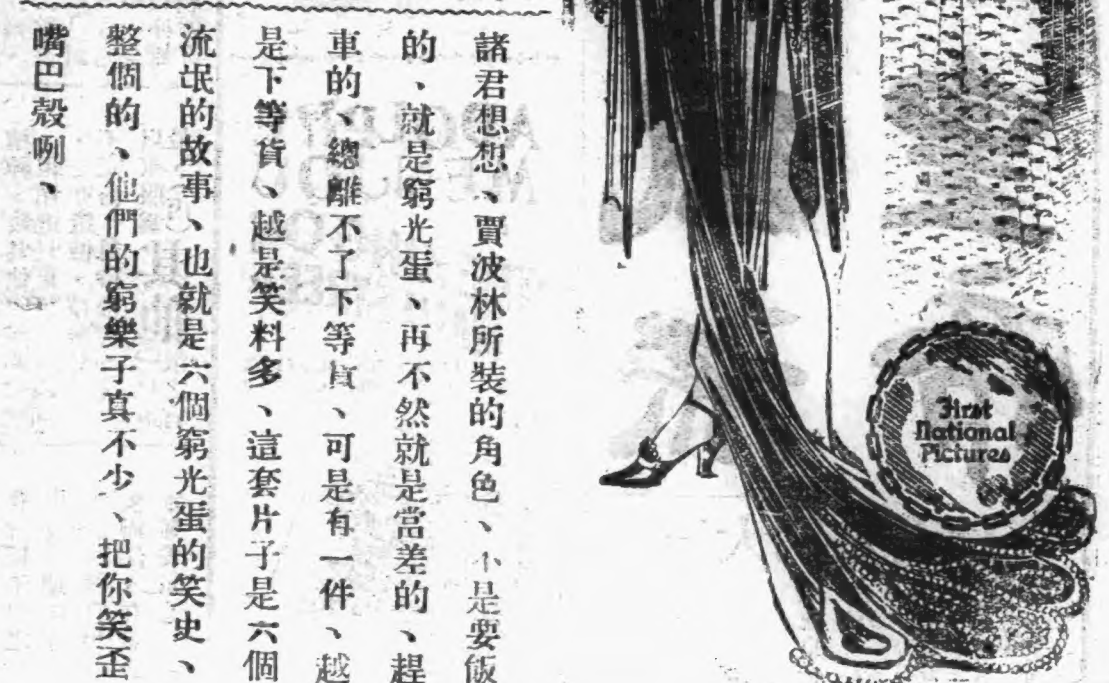 諸君想想、賈波林所装的角色、不是要飯
的、就是窮光蛋、再不然就是當差的、趕
車的、總離不了下等貨、可是有一件、越
是下等貨、越是笑料多、這套片子是六個
流氓的故事、也就是六個窮光蛋的笑史、
整個的、他們的窮樂子真不少、把你笑歪
嘴巴殼咧、
First
National
Pictures